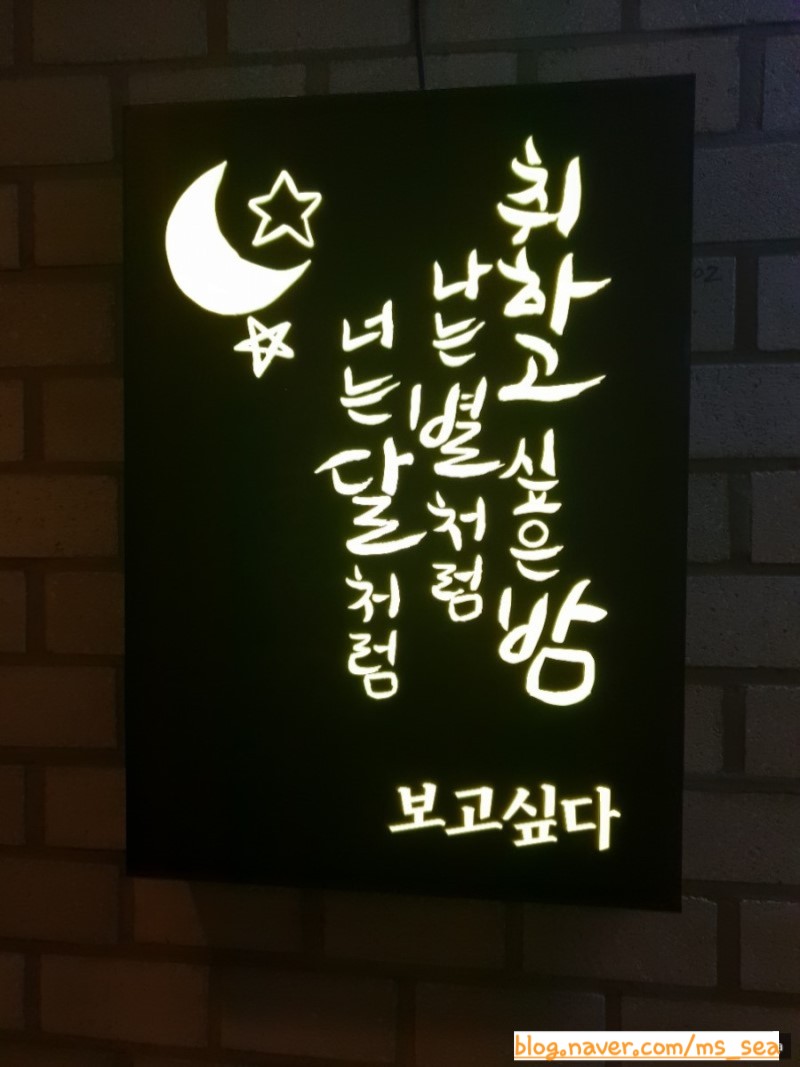 취하고 싶은 밤
나는 별처럼
너는 달처럼
보고싶다
blog.naver.com/ms_sea